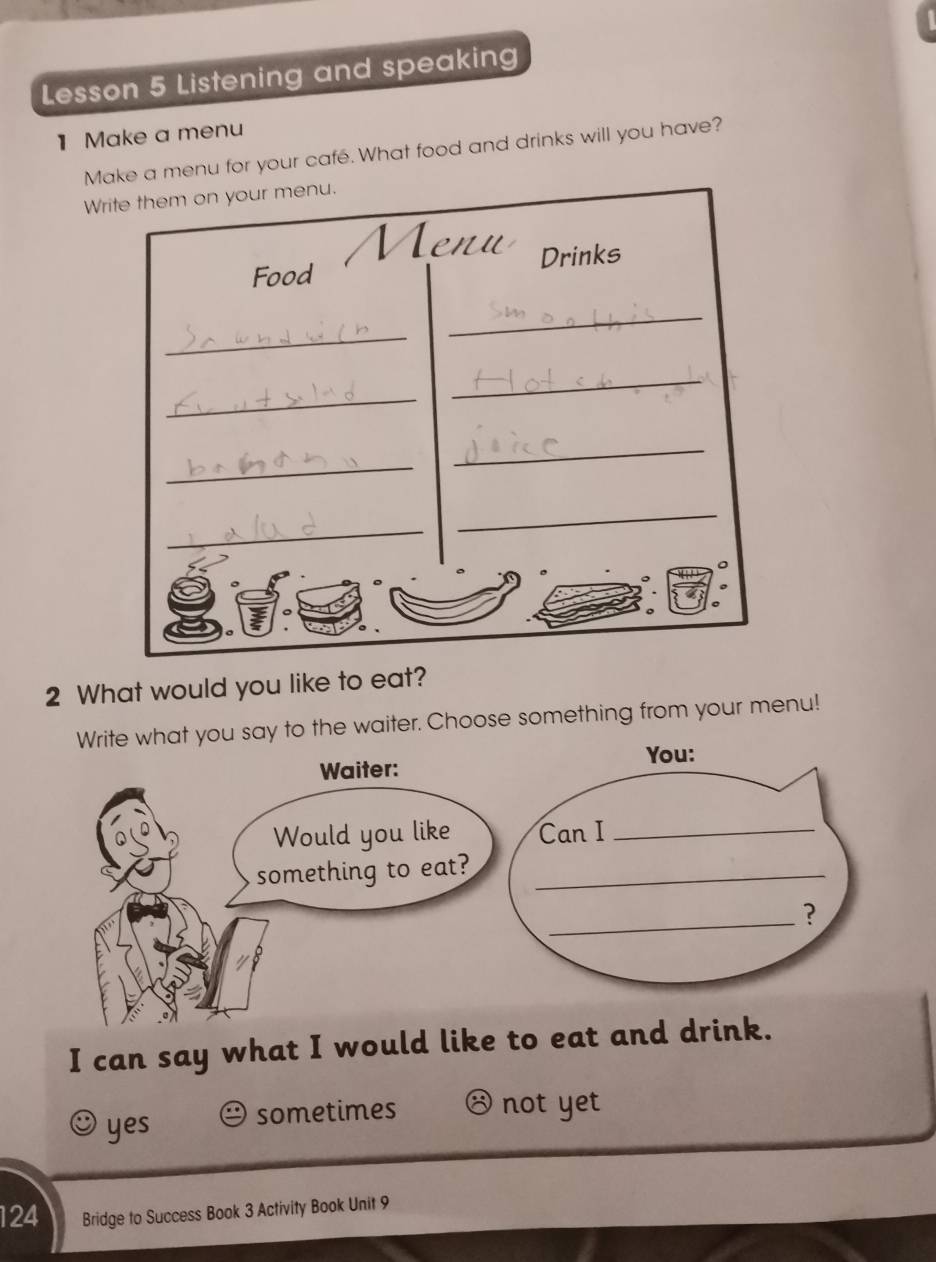 Lesson 5 Listening and speaking
1 Make a menu
Make a menu for your café. What food and drinks will you have?
Write them on your menu.
Menu
Food
Drinks
smoothis
Sawndwich
Hot
Fruutsalad
joice
banana
salad
2 What would you like to eat?
Write what you say to the waiter. Choose something from your menu!
Waiter:
You:
Would you like
something to eat?
Can I
?
I can say what I would like to eat and drink.
yes
sometimes
not yet
124
Bridge to Success Book 3 Activity Book Unit 9